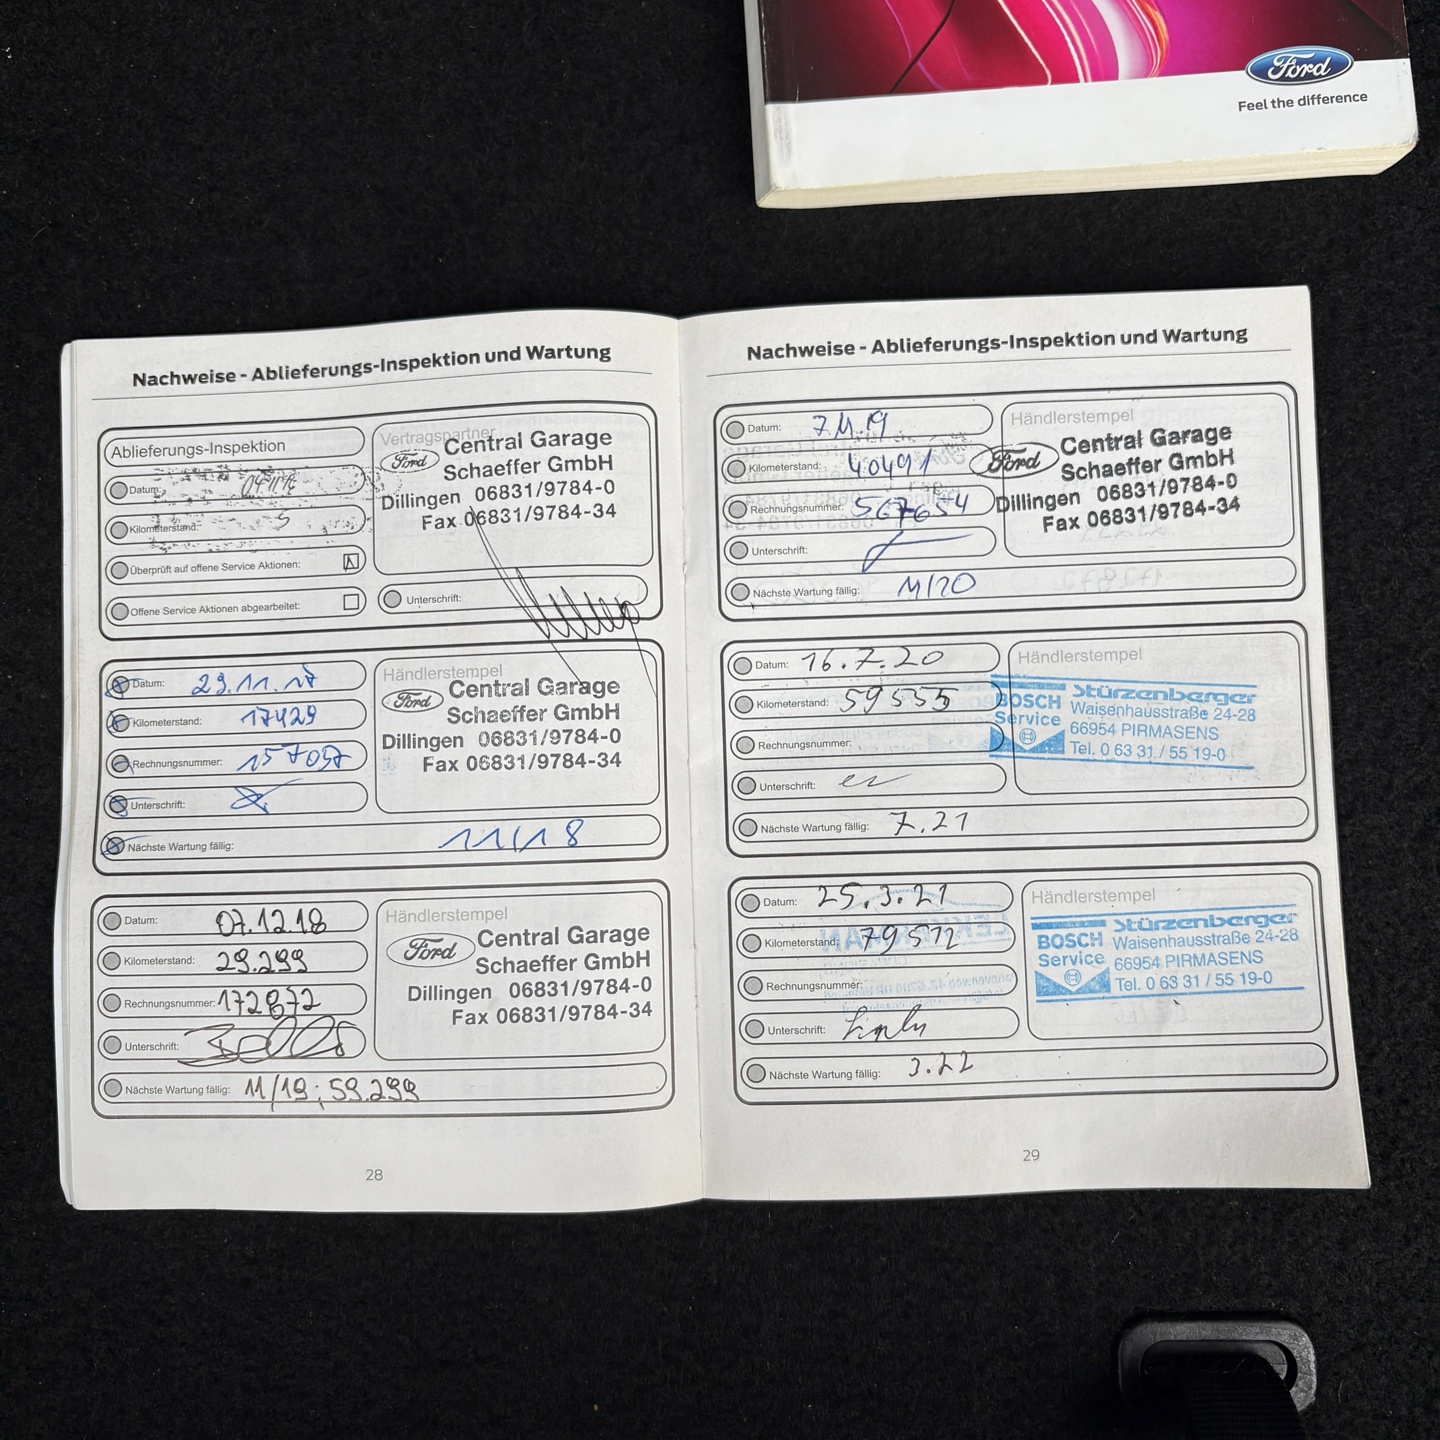 Ford
Feel the difference
Nachweise - Ablieferungs-Inspektion und Wartung
Ablieferungs-Inspektion
Datum:
Kilometerstand: 5
Überprüft auf offene Service Aktionen:
Offene Service Aktionen abgearbeitet:
Vertragspartner
Ford
Central Garage
Schaeffer GmbH
Dillingen 06831/9784-0
Fax 06831/9784-34
Unterschrift:
Datum: 29.11.17
Kilometerstand: 17429
Rechnungsnummer: 157057
Unterschrift:
Nächste Wartung fällig: 11/18
Händlerstempel
Ford
Central Garage
Schaeffer GmbH
Dillingen 06831/9784-0
Fax 06831/9784-34
Datum: 07.12.18
Kilometerstand: 29.299
Rechnungsnummer: 172872
Unterschrift:
Nächste Wartung fällig: 11/19; 59.299
Händlerstempel
Ford
Central Garage
Schaeffer GmbH
Dillingen 06831/9784-0
Fax 06831/9784-34
28
Nachweise - Ablieferungs-Inspektion und Wartung
Datum: 7.11.19
Kilometerstand: 40491
Rechnungsnummer: 567654
Unterschrift:
Nächste Wartung fällig: 11/20
Händlerstempel
Ford
Central Garage
Schaeffer GmbH
Dillingen 06831/9784-0
Fax 06831/9784-34
Datum: 16.7.20
Kilometerstand: 59555
Rechnungsnummer:
Unterschrift:
Nächste Wartung fällig: 7.21
Händlerstempel
BOSCH
Service
Stürzenberger
Waisenhausstraße 24-28
66954 PIRMASENS
Tel. 0 63 31 / 55 19-0
Datum: 25.3.21
Kilometerstand: 79512
Rechnungsnummer:
Unterschrift:
Nächste Wartung fällig: 3.22
Händlerstempel
BOSCH
Service
Stürzenberger
Waisenhausstraße 24-28
66954 PIRMASENS
Tel. 0 63 31 / 55 19-0
29